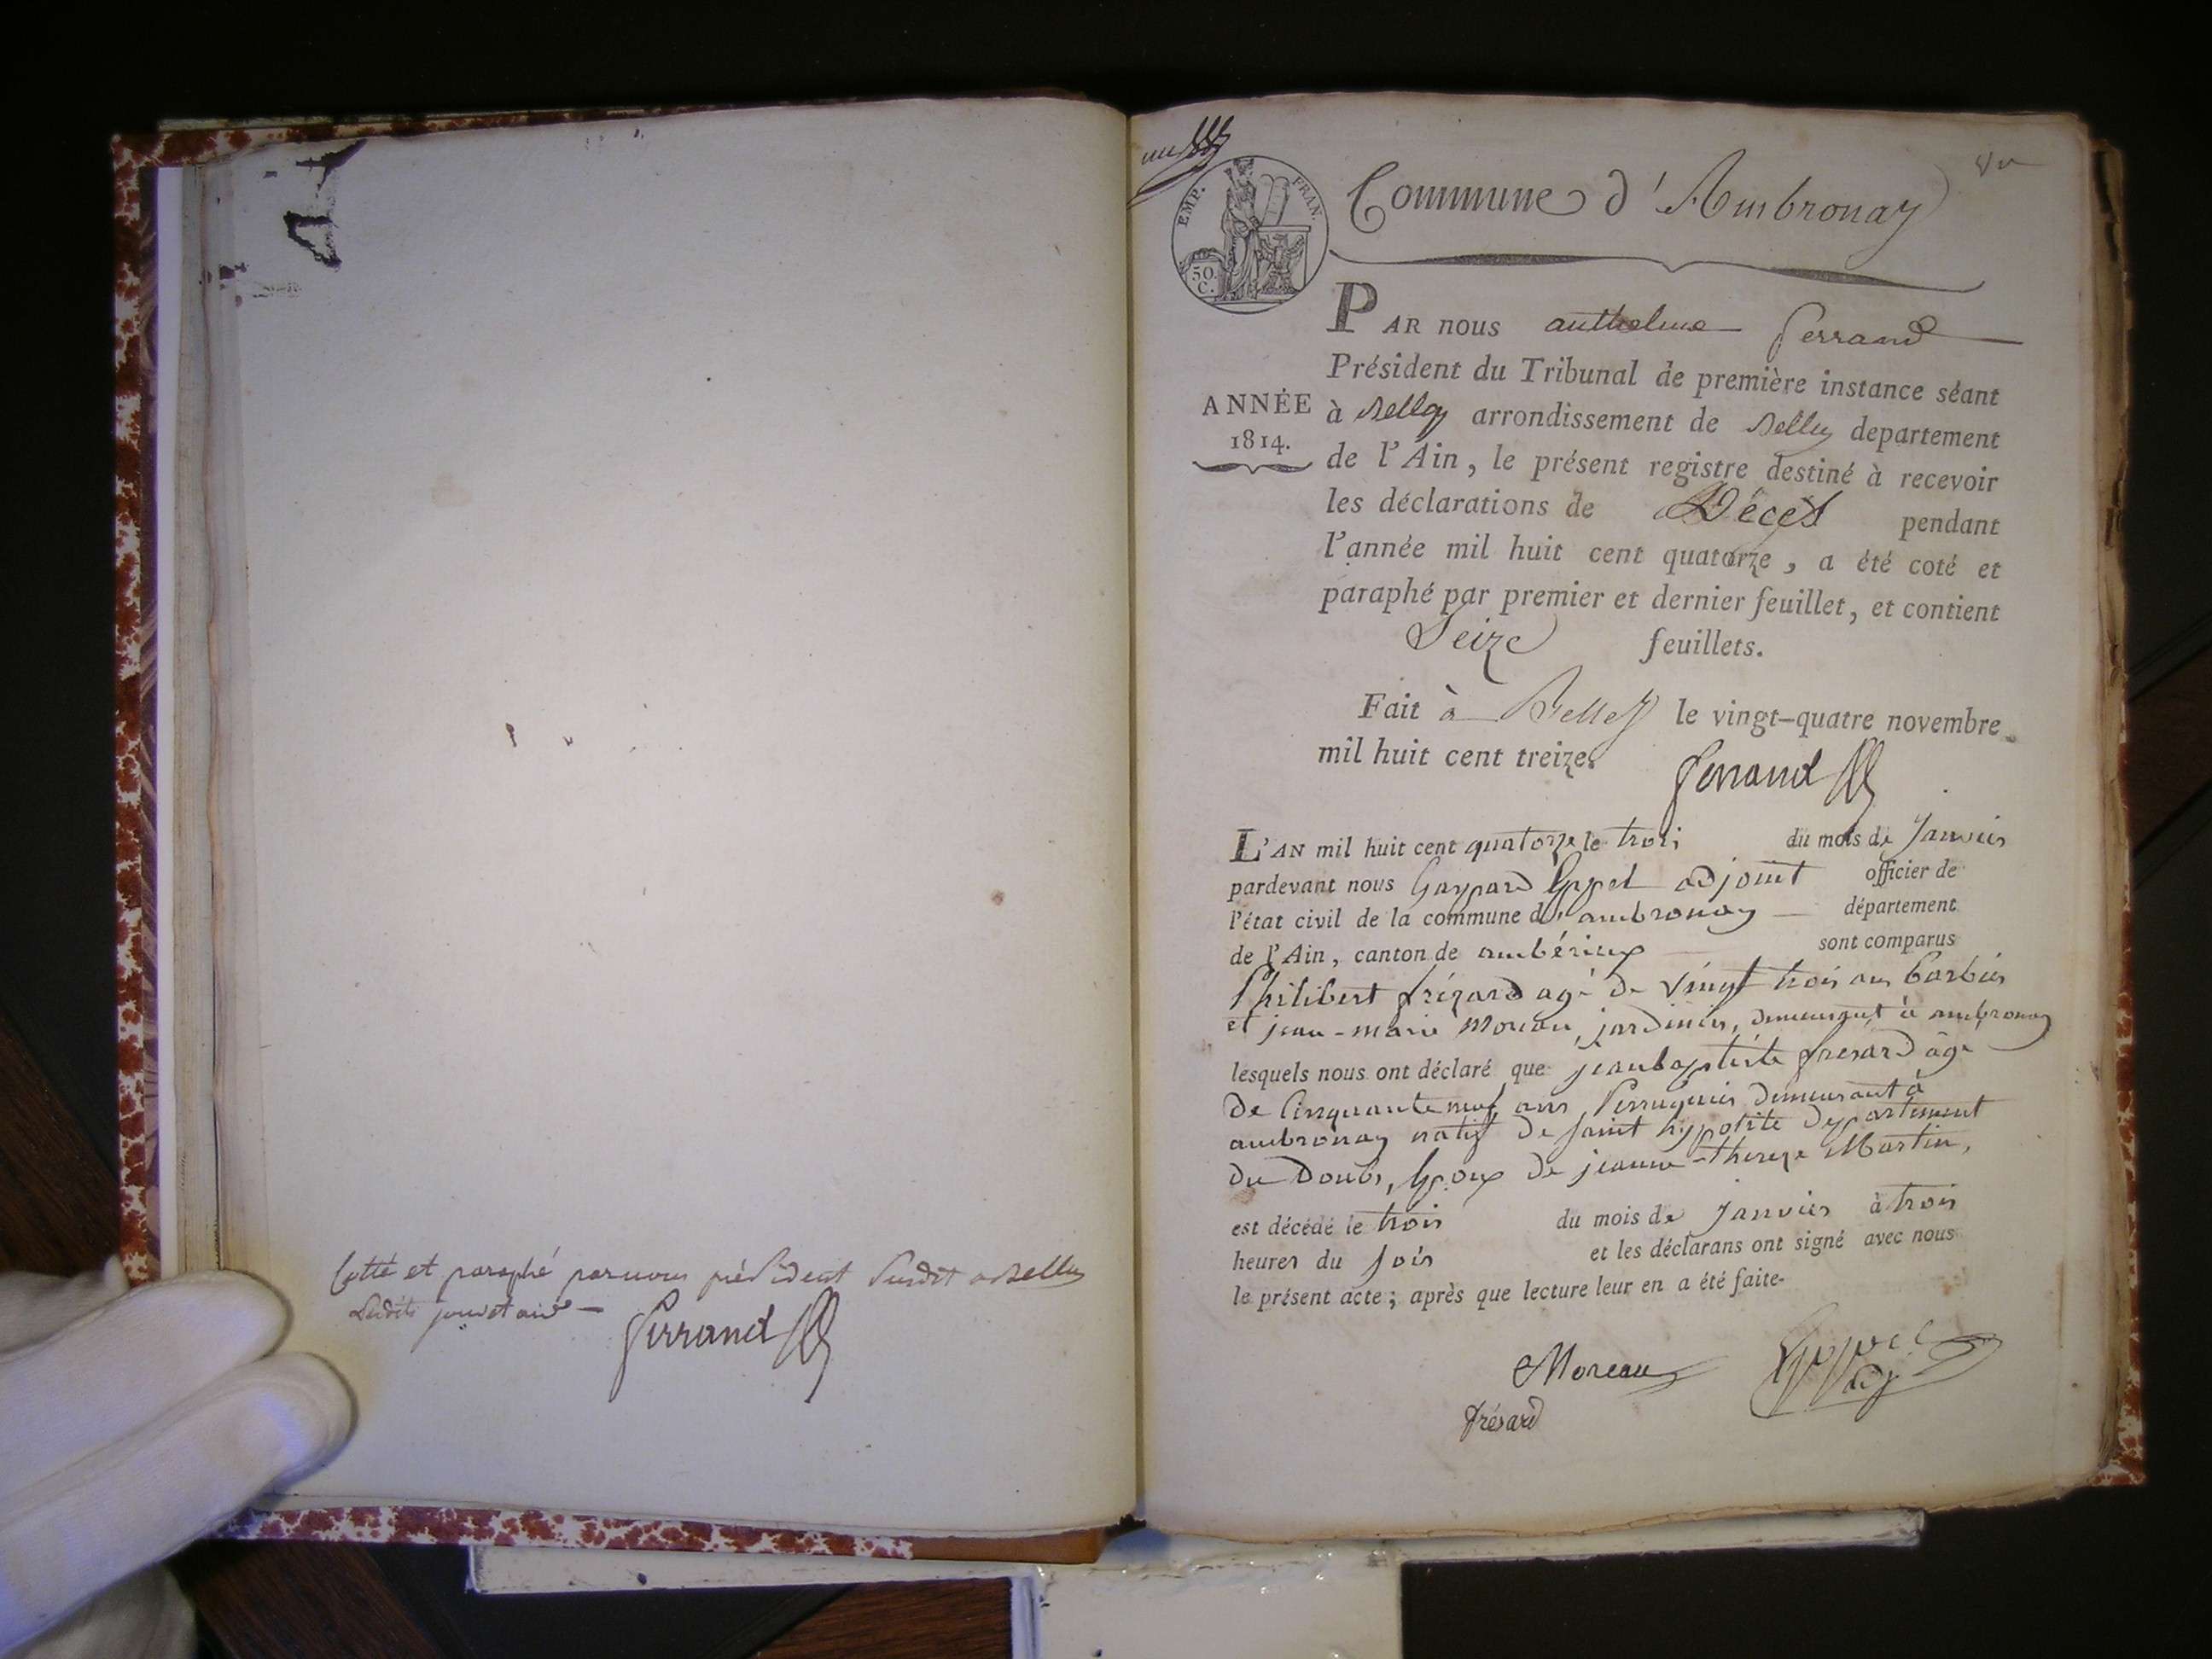 Cotté et paraphé par nous président susdit a Belley
Lesdits jour et an
Ferrand
un
EMP. FRAN.
50.
C.
Commune d'Ambronay
PAR nous anthelme ferrand
Président du Tribunal de première instance séant
ANNÉE
1814.
à Belley arrondissement de Belley departement
de l'Ain, le présent registre destiné à recevoir
les déclarations de Décès pendant
l'année mil huit cent quatorze, a été coté et
paraphé par premier et dernier feuillet, et contient
Seize feuillets.
Fait à Belley le vingt-quatre novembre
mil huit cent treize.
ferrand
L'AN mil huit cent quatorze le trois du mois de Janvier
pardevant nous Gaspard Eppel adjoint officier de
l'état civil de la commune d'ambronay département
de l'Ain, canton de ambérieux sont comparus
Philibert frézard agé de vingt trois ans barbier
et jean-marie Moreau, jardinier, demeurant à ambronay
lesquels nous ont déclaré que jean baptiste fresard âgé
de Cinquante neuf ans, Perruquier demeurant à
ambronay natif de saint hypolite departement
du Doubs, Epoux de jeanne-thereze Martin,
est décédé le trois du mois de Janvier à trois
heures du soir et les déclarans ont signé avec nous
le présent acte; après que lecture leur en a été faite.
Moreau
Eppel
adj
frésard